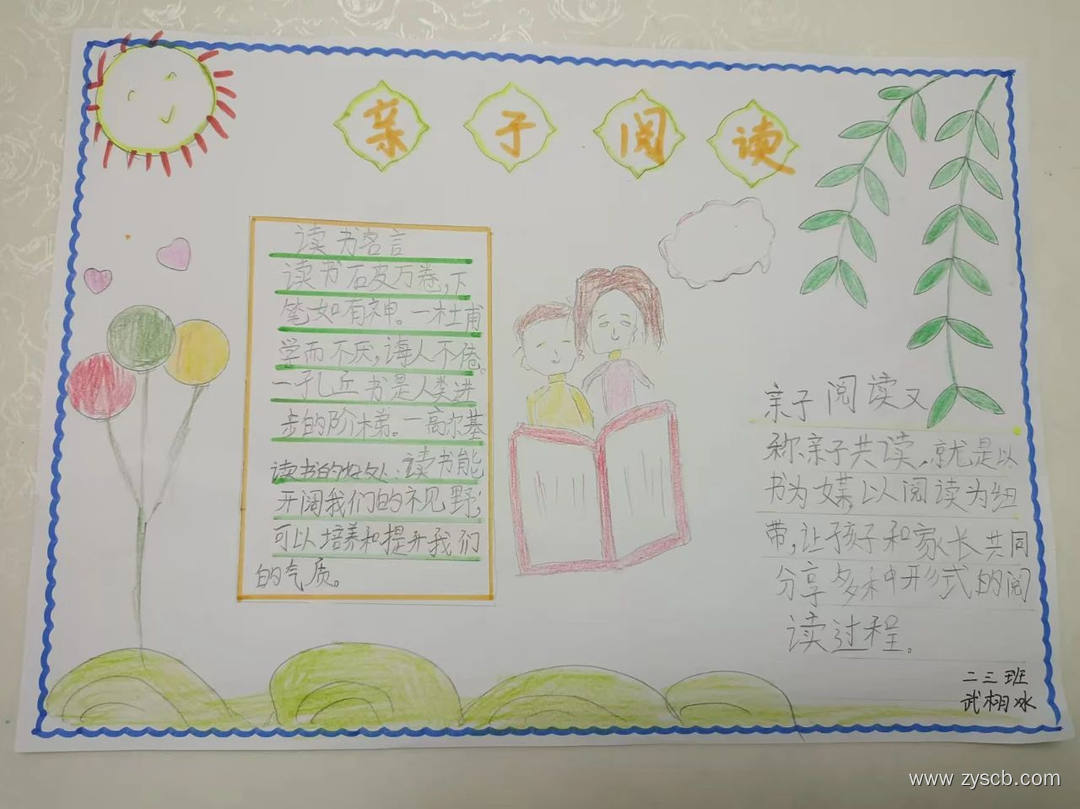 亲子阅读
读书名言
读书破万卷,下
笔如有神。一杜甫
学而不厌,诲人不倦、
一孔丘 书是人类进
步的阶梯。一高尔基
读书的好处:读书能
开阔我们的视野,
可以培养和提升我们
的气质。
亲子阅读又
称亲子共读,就是以
书为媒,以阅读为纽
带,让孩子和家长共同
分享多种形式的阅
读过程。
二三班
武栩冰
www.zyscb.com